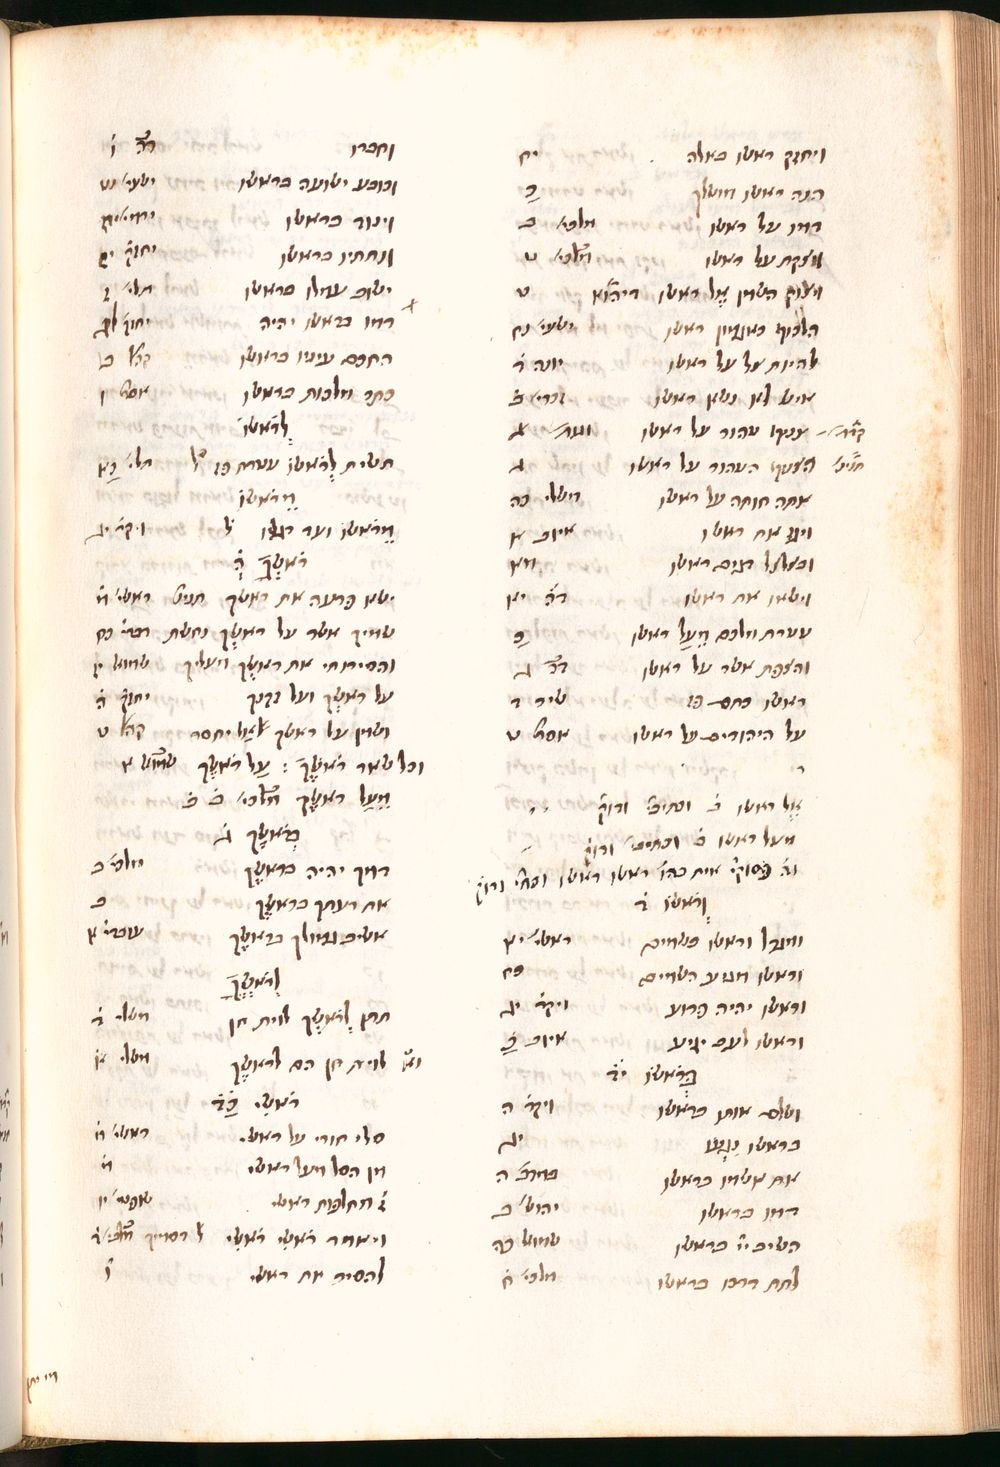 ויחזק ראשו כאלה יח
הנה ראשו מושלך כ
דמו על ראשו מלכי׳ ב
ויצקת על ראשו מלכי׳ ט
ויצוק השמן אל ראשו ט
הלכוף כאגמון ראשו ישעי׳ נח
להיות צל על ראשו יונה ד
איש לא נשא ראשו זכרי׳ ב
צניף טהור על ראשו ג
הצניף הטהור על ראשו ג
אתה חותה על ראשו משלי כה
ויגז את ראשו איוב א
וכצלצל דגים ראשו מא
וישאו את ראשו יא
עטרת מלכם מעל ראשו כ
והצפת אשר על ראשו ג
ראשו כתם פז שיר ד
על היהודים על ראשו אסת׳ ט
אל ראשו ב׳
מעל ראשו ב׳
וראשו ד
ומגדל וראשו בשמים ראשי׳ יא
וראשו מגיע השמים כח
וראשו יהיה פרוע ויקר׳ יג
וראשו לעב יגיע איוב כ
בראשו יד
ושלם אותו בראשו ויקר׳ ה
בראשו נגעו יג
את אשמו בראשו במדב׳ ה
דמו בראשו יהוש׳ ב
השיב יי׳ בראשו שמוא׳ כה
לתת דרכו בראשו מלכי׳ ח
וחברו ו
וכובע ישועה בראשו ישעי׳ נט
וינוד בראשו ירמי׳ יח
ונתתיו בראשו יחזק׳ יז
ישוב עמלו בראשו תלי׳ ז
דמו בראשו יהיה יחזק׳ לג
החכם עיניו בראשו קהל׳ ב
כתר מלכות בראשו אסת׳ ו
לראשו
תשית לראשו עטרת פז ל׳ תלי׳ כא
מראשו
מראשו ועד רגליו ל׳ ויקר׳ יג
ראשך ה
ישא פרעה את ראשך ראשי׳ מ
שמיך אשר על ראשך נחשת דבר׳ כח
והסירותי את ראשך מעליך שמוא׳ יז
על ראשך ועל זקנך יחזק׳ ה
ושמן על ראשך אל יחסר קהל׳ ט
וכל שאר ראשך : על ראשך שמוא׳ א
מעל ראשך מלכי׳ ב ב
בראשך ג
דמך יהיה בראשך מלכי׳ ב
את רעתך בראשך ב
אשיב גמולך בראשך עובדי׳ א
לראשך
תתן לראשך לוית חן משלי ד
לוית חן הם לראשך משלי א
ראשי כד
סלי חורי על ראשי ראשי׳ מ
מן הסל מעל ראשי מ
ז׳ מחלפות ראשי שופטי׳ יו
ויאמר ראשי ראשי ל׳
להסיר את ראשי ו